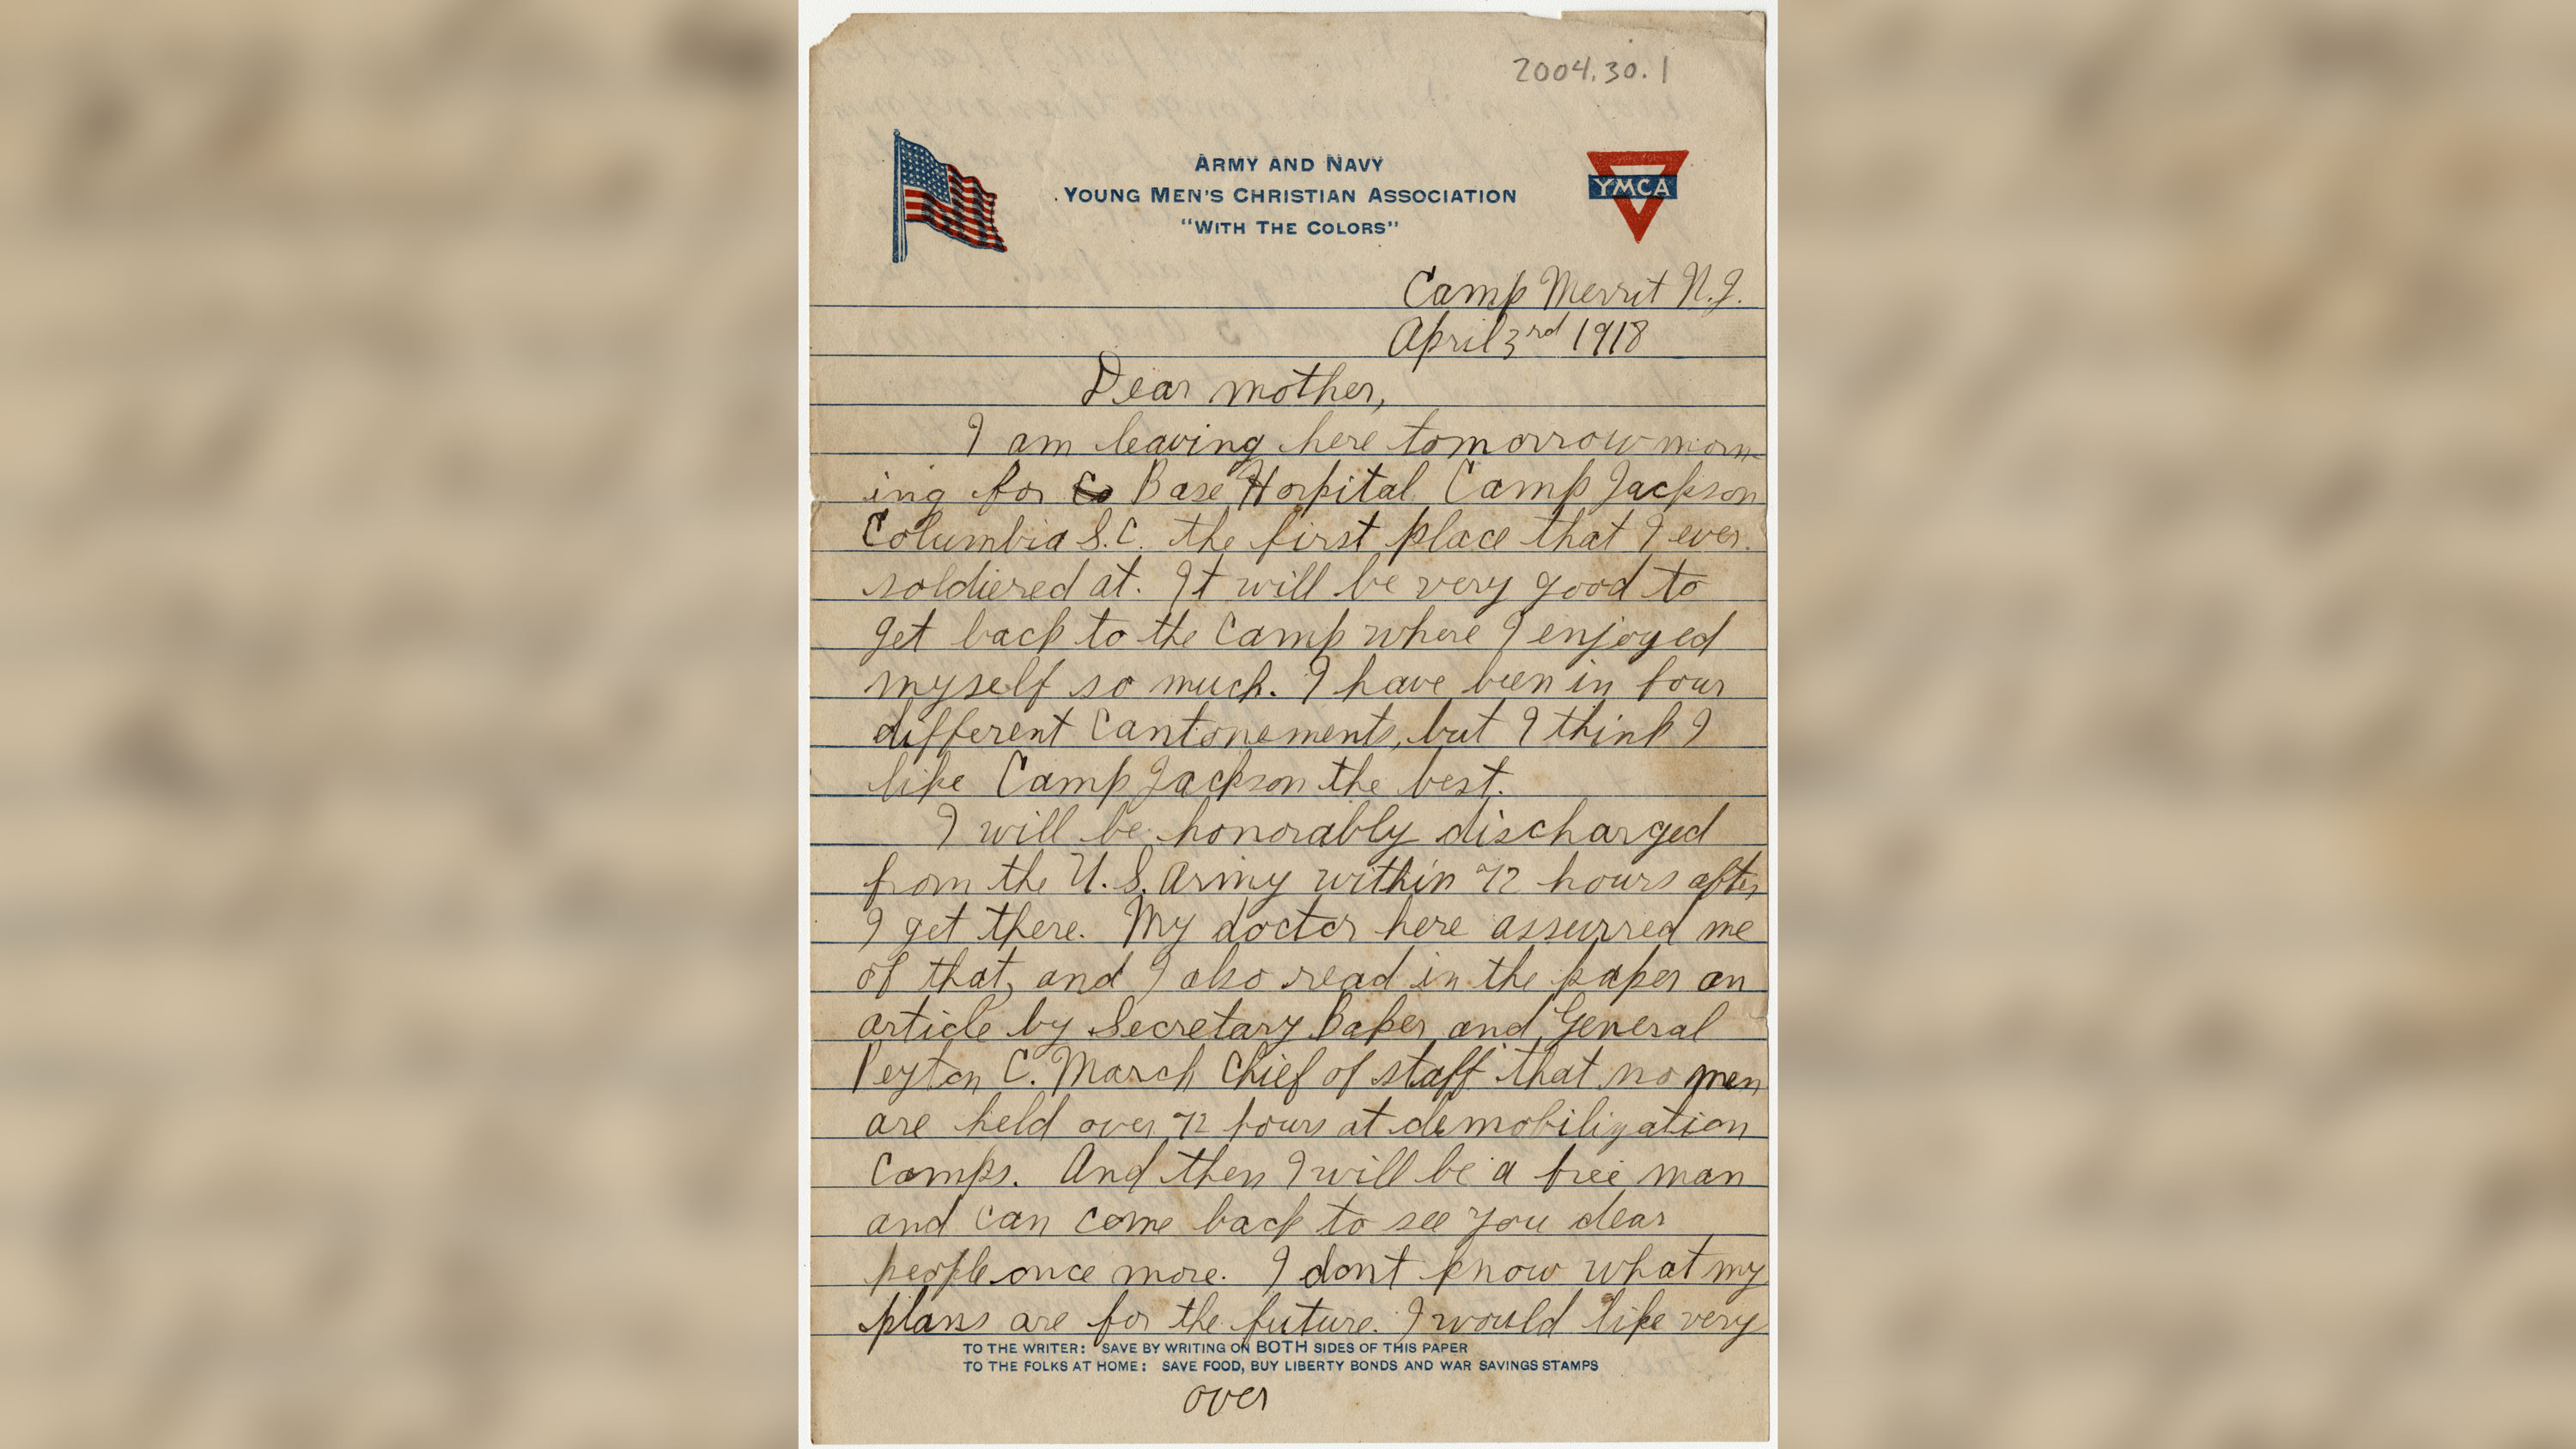 2004.30.1
ARMY AND NAVY
YOUNG MEN'S CHRISTIAN ASSOCIATION
"WITH THE COLORS"
YMCA
Camp Merrit N.J.
April 3rd 1918
Dear mother,
I am leaving here tomorrow morn
ing for Co Base Hospital Camp Jackson
Columbia S.C. the first place that I ever
soldiered at. It will be very good to
get back to the Camp where I enjoyed
myself so much. I have been in four
different Cantonements, but I think I
like Camp Jackson the best.
I will be honorably discharged
from the U.S. Army within 72 hours after
I get there. My doctor here assurred me
of that, and I also read in the paper an
article by Secretary Baker and General
Peyton C. March Chief of staff that no men
are held over 72 hours at demobilization
Camps. And then I will be a free man
and can come back to see you dear
people once more. I dont know what my
plans are for the future. I would like very
TO THE WRITER: SAVE BY WRITING ON BOTH SIDES OF THIS PAPER
TO THE FOLKS AT HOME: SAVE FOOD, BUY LIBERTY BONDS AND WAR SAVINGS STAMPS
over